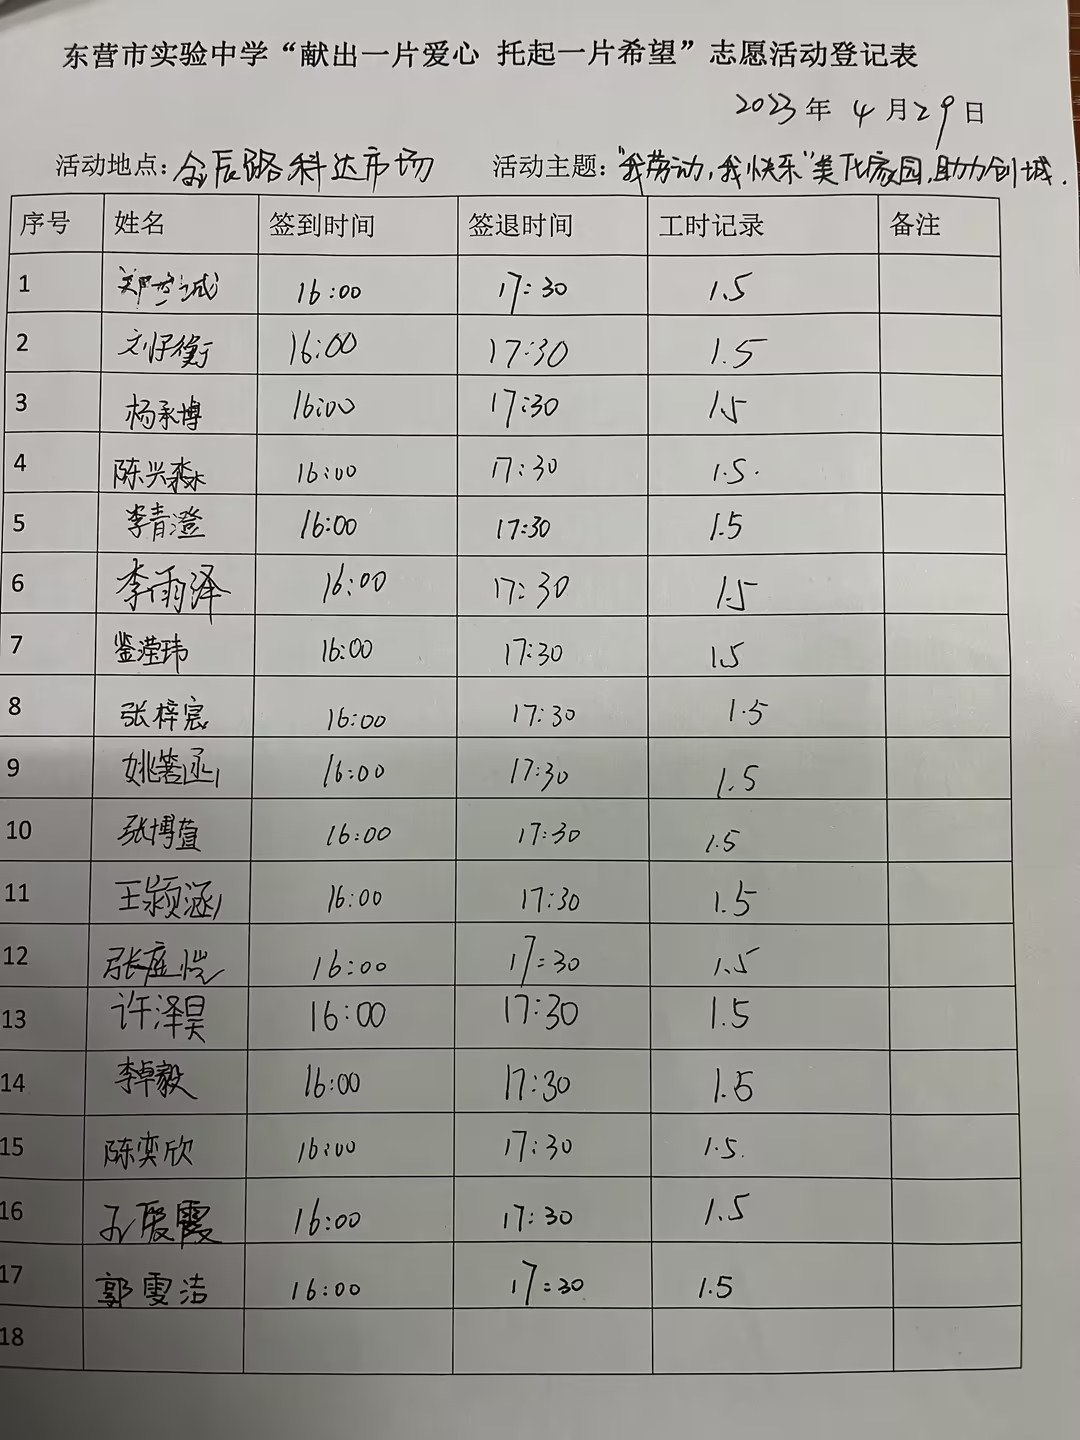 东营市实验中学“献出一片爱心 托起一片希望”志愿活动登记表
2023年 4月29日
活动地点：金辰路科达市场 活动主题：“我劳动，我快乐”美化家园，助力创城.
序号 姓名 签到时间 签退时间 工时记录 备注
1 16:00 17:30 1.5
2 刘仔衡 16:00 17:30 1.5
3 杨承博 16:00 17:30 1.5
4 陈兴淼 16:00 17:30 1.5.
5 李青澄 16:00 17:30 1.5
6 李雨泽 16:00 17:30 1.5
7 16:00 17:30 1.5
8 张梓宸 16:00 17:30 1.5
9 16:00 17:30 1.5
10 张博萱 16:00 17:30 1.5
11 王颍涵 16:00 17:30 1.5
12 张庭恺 16:00 17:30 1.5
13 许泽昊 16:00 17:30 1.5
14 李卓毅 16:00 17:30 1.5
15 陈奕欣 16:00 17:30 1.5.
16 16:00 17:30 1.5
17 郭雯洁 16:00 17:30 1.5
18